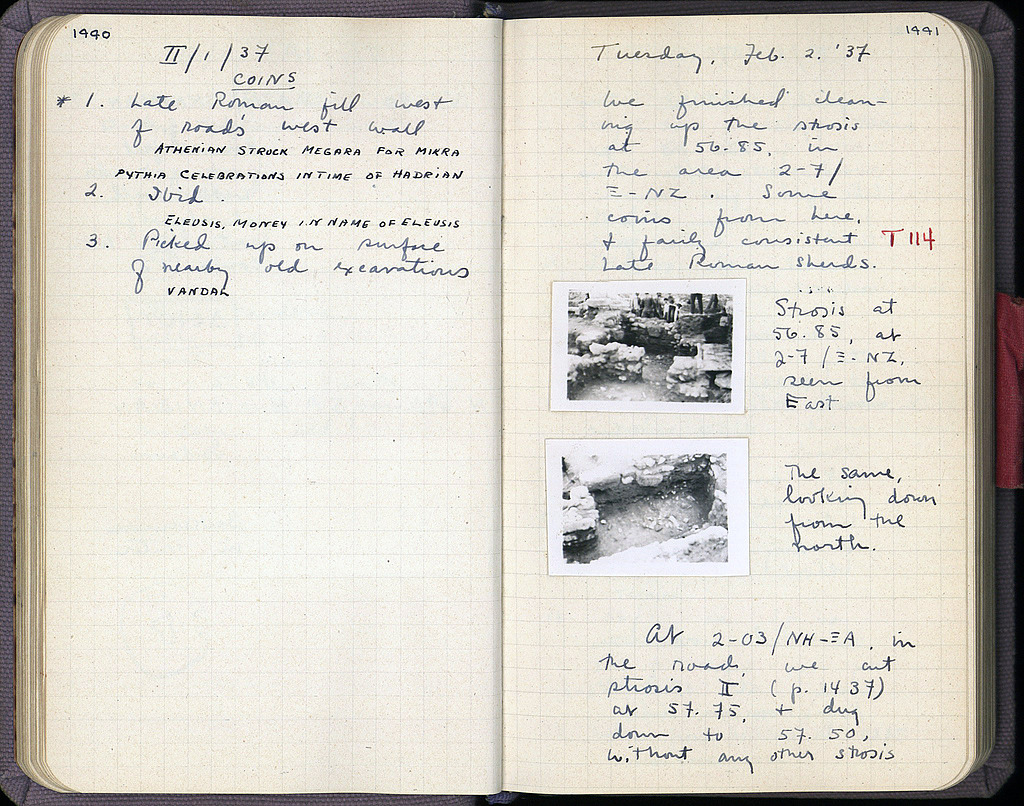 1440
II/1/37
COINS
* 1. Late Roman fill west
of road's west wall
ATHENIAN STRUCK MEGARA FOR MIKRA
PYTHIA CELEBRATIONS IN TIME OF HADRIAN
2. Ibid.
ELEUSIS, MONEY IN NAME OF ELEUSIS
3. Picked up on surface
of nearby old excavations
VANDAL
1441
Tuesday, Feb. 2. '37
We finished clean-
ing up the strosis
at 56.85, in
the area 2-7/
Ξ-ΝΖ. Some
coins from here,
& fairly consistent T 114
Late Roman sherds.
Strosis at
56.85, at
2-7/Ξ-ΝΖ,
seen from
East
The same,
looking down
from the
north.
At 2-03/ΝΗ-ΞΑ, in
the road, we cut
strosis II (p. 1437)
at 57.75, & dug
down to 57.50,
without any other strosis